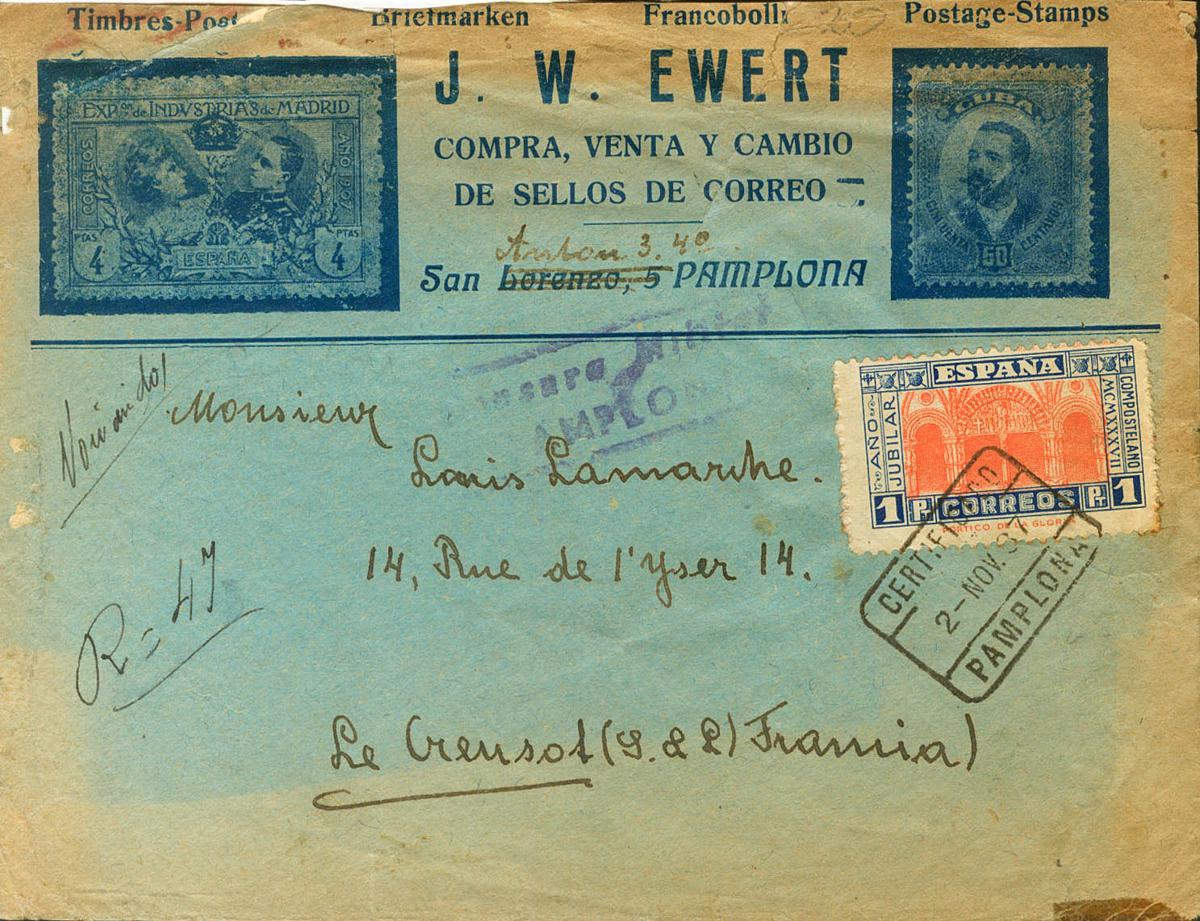 Timbres-Post Briefmarken Francobolli Postage-Stamps
J. W. EWERT
COMPRA, VENTA Y CAMBIO
DE SELLOS DE CORREO
Anton 3. 4º
San Lorenzo, 5 PAMPLONA
EXPon de INDVSTRIAS de MADRID
CORREOS
AÑO 1907
4 PTAS
ESPAÑA
PTAS 4
CUBA
CINCUENTA 50 CENTAVOS
ensura Militar
AMPLON
ESPAÑA
AÑO JUBILAR
COMPOSTELANO
MCMXXXVII
1 P. CORREOS PT 1
PORTICO DE LA GLORIA
CERTIFICADO
2-NOV. 37
PAMPLONA
R = 47
Monsieur
Louis Lamarche.
14, Rue de l'Yser 14.
Le Creusot (S. & L) Francia)